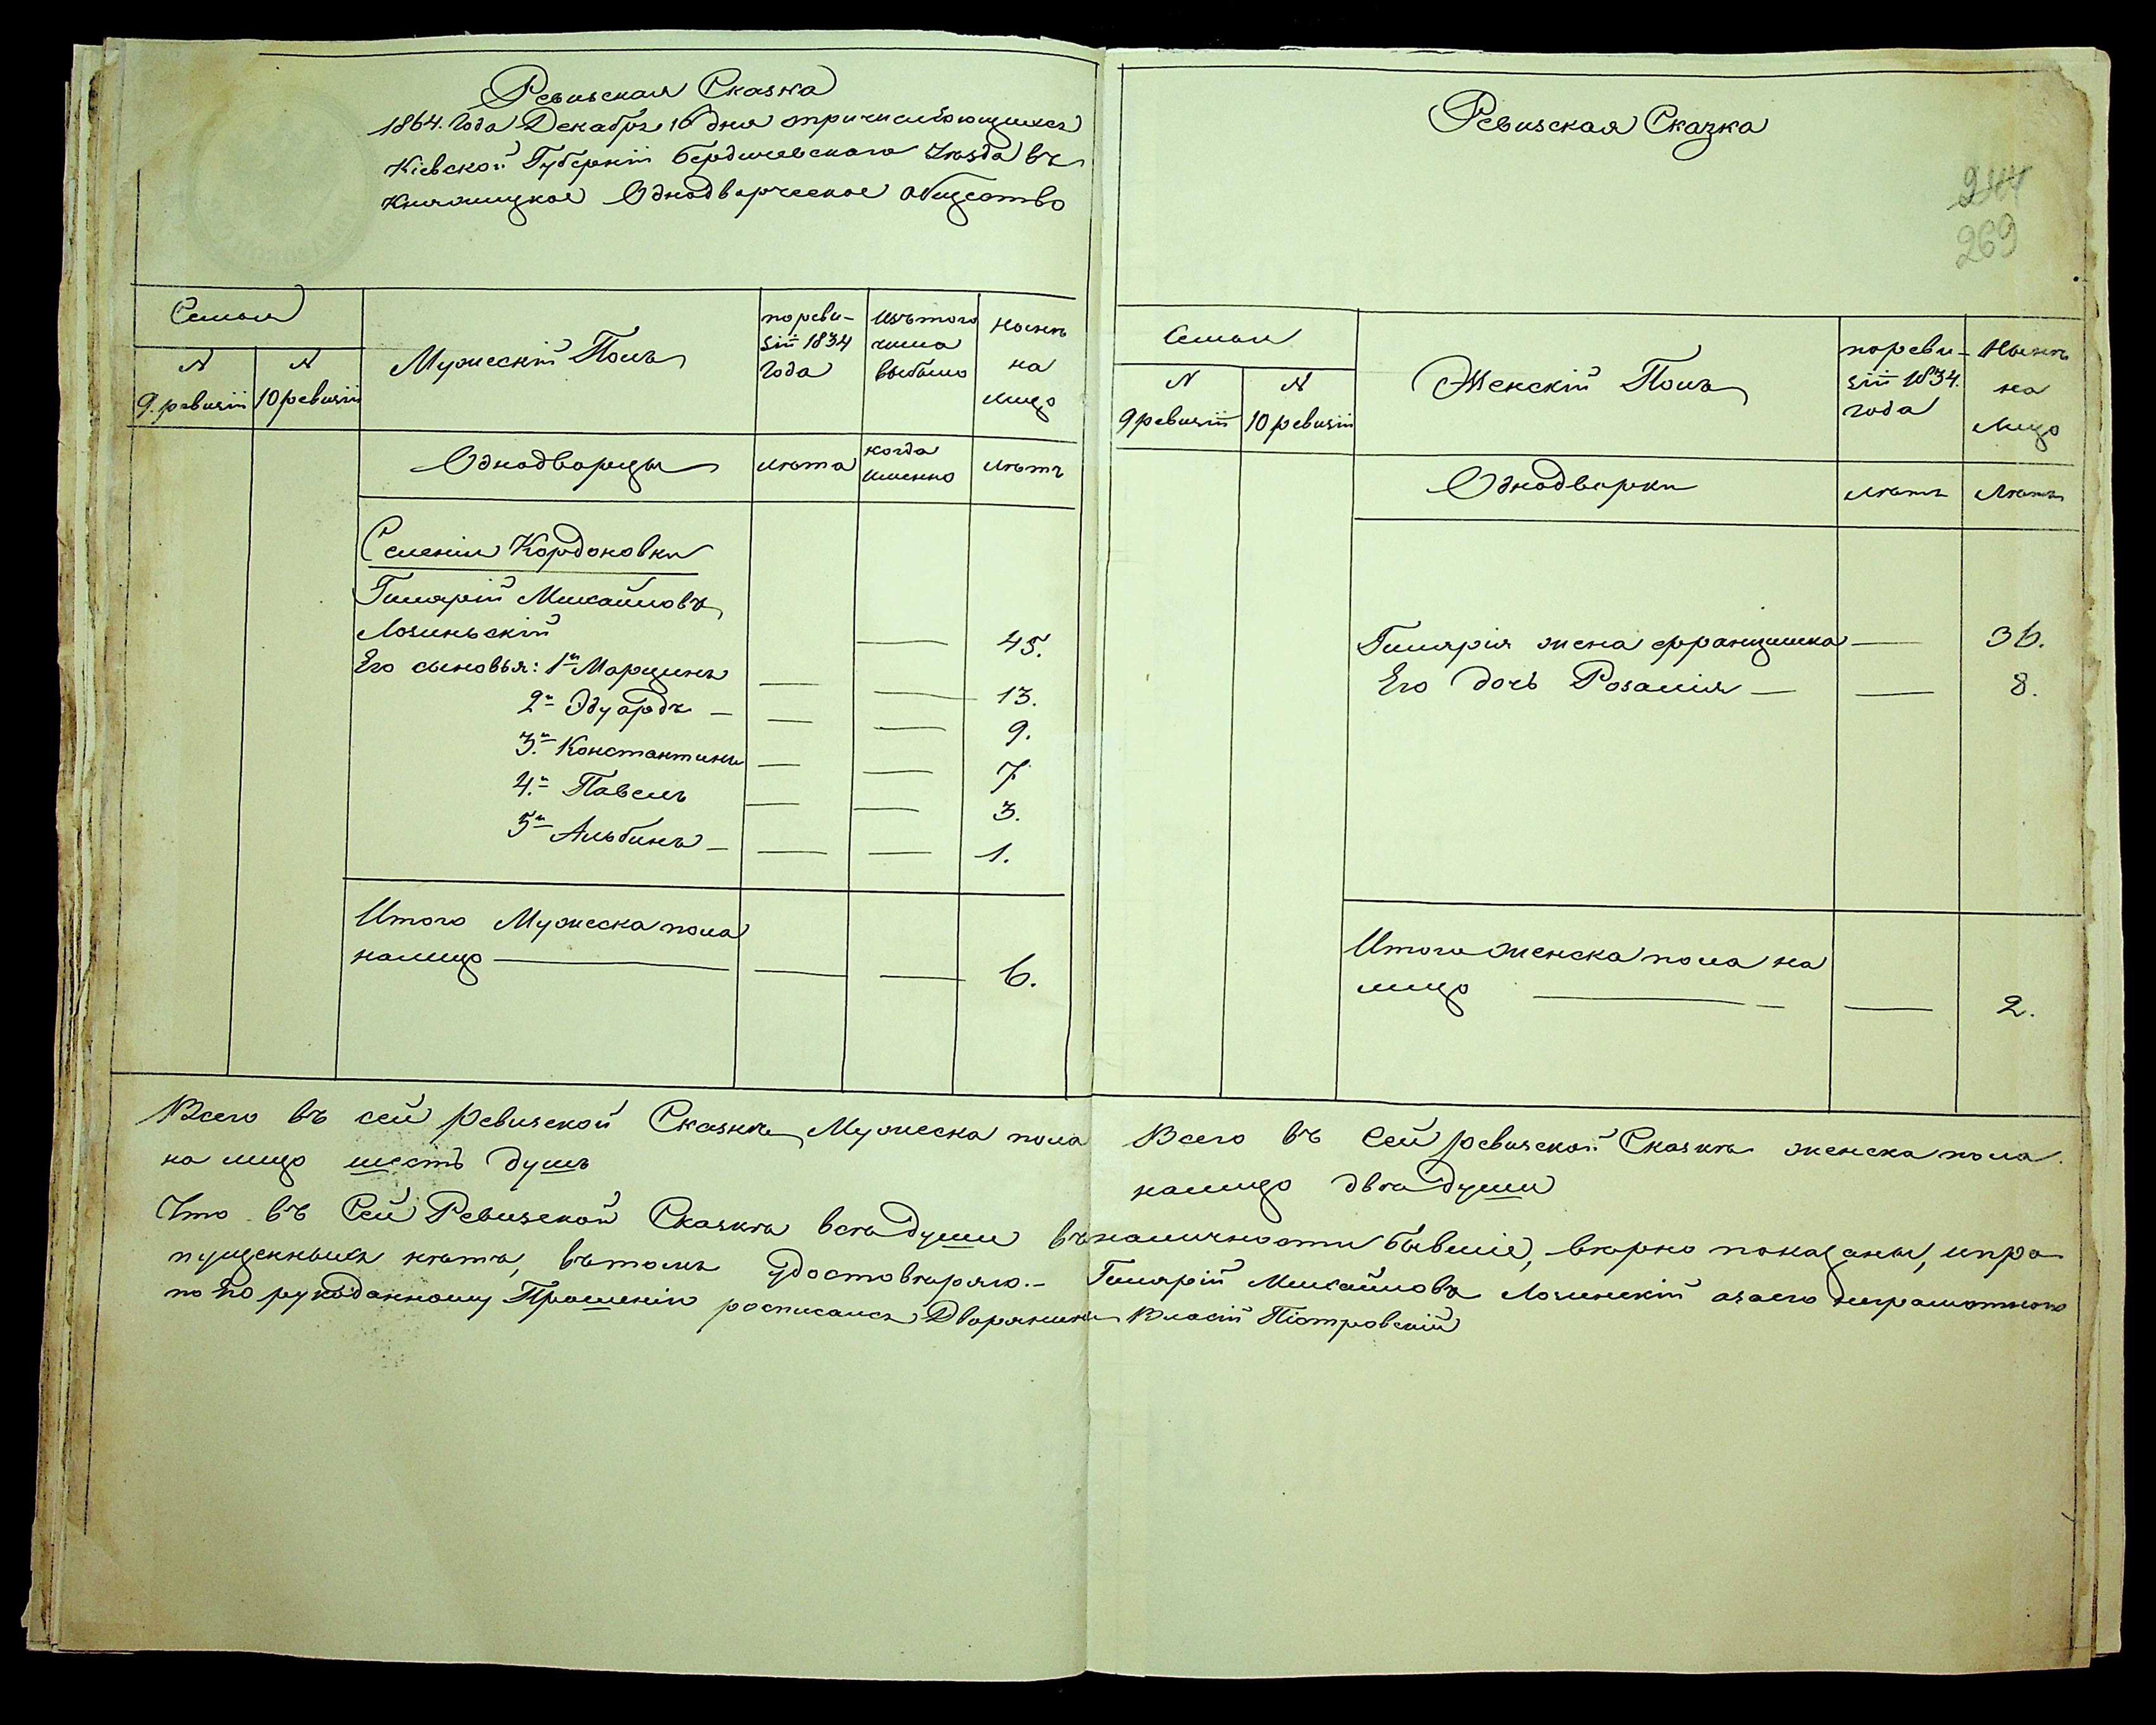 Ревизская Сказка
1864. Года Декабря 16 дня причисляющихся
Кіевской Губерніи Бердичевскаго Уѣзда въ
Княжицкое Однодворческое общество
Семьи
N
9. ревизіи
N
10 ревизіи
Мужескій Полъ
по реви-
зіи 1834
Года
изъ того
числа
выбыло
Нынѣ
на
лицо
Однодворцы
лѣта
когда
именно
лѣтъ
Селенія Кордоновки
Гилярій Михайловъ
Лозиньскій — 45.
Его сыновья: 1й Марцинъ — — 13.
2й Эдуардъ — — — 9.
3й Константинъ — — 7
4й Павелъ — — 3.
5й Альбинъ — — — 1.
Итого Мужеска пола
налицо — — — 6.
Всего въ сей ревизской Сказкѣ Мужеска пола
на лицо шесть душъ
Ревизская Сказка
244
269
Семьи
N
9 ревизіи
N
10 ревизіи
Женскій Полъ
по реви-
зіи 1834.
года
Нынѣ
на
Лицо
Однодворки
лѣтъ
Лѣтъ
Гилярія жена Францишка — 36.
Его дочь Розалія — — 8.
Итого женска пола на
лицо — — — 2.
Всего въ Сей ревизской Сказкѣ женска пола
налицо двѣ души
Что въ Сей Ревизской Сказкѣ всѣ души въ наличности бывшіе, вѣрно показаны, и про-
пущенныхъ нѣтъ, въ томъ удостовѣряю. — Гилярій Михайловъ Лозинскій а за его неграмотного
по Его рукоданному Прошенію росписался Дворянинъ Власій Піотровскій